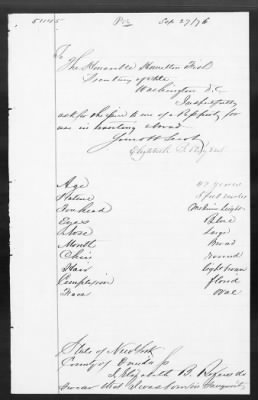 Sep 27/76
To
The Honorable Hamilton Fish
Secretary of State
Washington D.C.
Respectfully
ask for the issue to me of a Passport for
use in traveling abroad.
Your Obt Servt
Elizabeth B.
Age 47 years
Stature 5 feet
Forehead Medium height
Eyes Blue
Nose Large
Mouth Broad
Chin round
Hair light brown
Complexion florid
Face Oval
State of New York
County of
I Elizabeth B. do
swear that I was born in